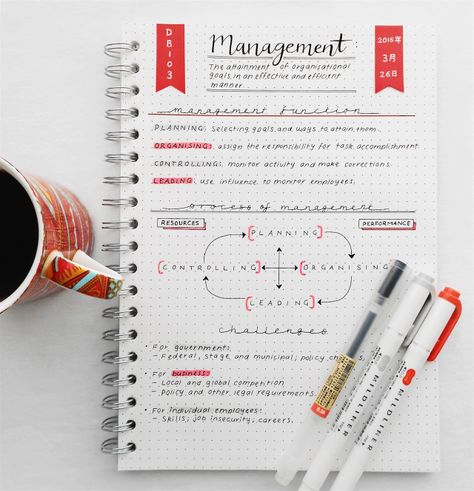 DB103
Management:
The attainment of organisational
goals in an effective and efficient
manner.
2016年
3月
26日
management function
PLANNING: Selecting goals and ways to attain them.
ORGANISING: assign the responsibility for task accomplishment
CONTROLLING: monitor activity and make corrections.
LEADING: use influence to monitor employees.
process of management
RESOURCES
PERFORMANCE
[PLANNING]
[CONTROLLING]
[ORGANISING]
[LEADING]
challenges
• For government:
- Federal, stage and municipal; policy
• For business:
- Local and global competition
- Policy and other legal requirements
• For individual employees:
- Skills; job insecurity; careers.
MILDLINER
MILDLINER